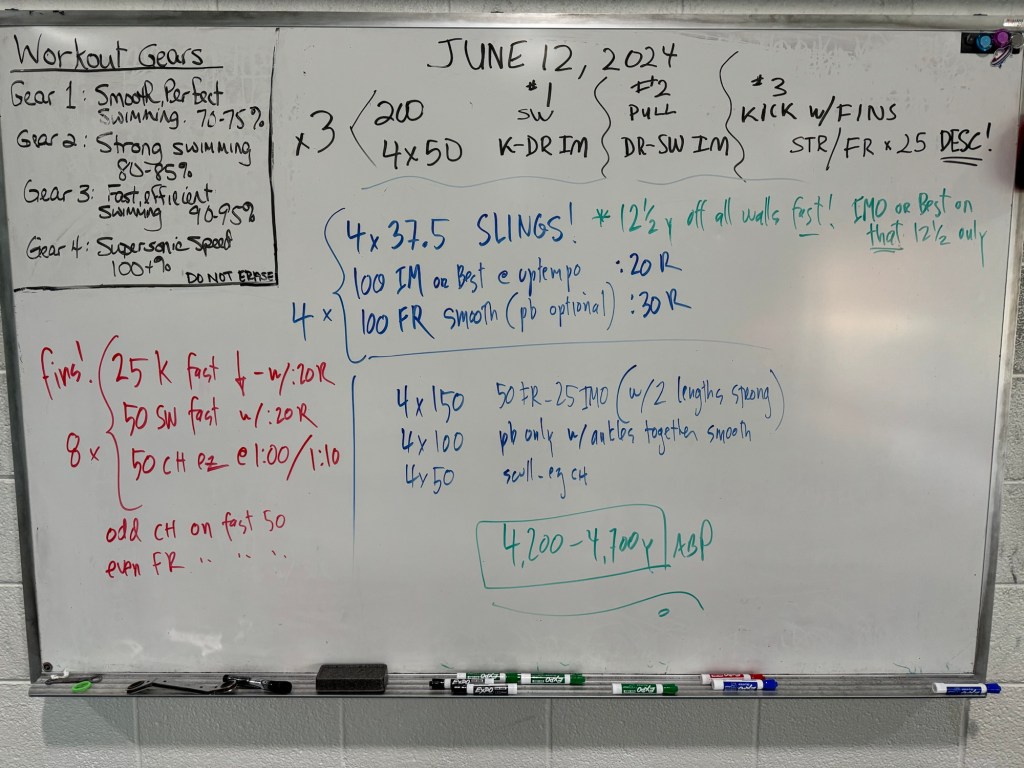 Workout Gears
Gear 1: Smooth, Perfect
swimming. 70-75%
Gear 2: Strong swimming
80-85%
Gear 3: Fast, efficient
swimming 90-95%
Gear 4: Supersonic Speed
100+%
DO NOT ERASE
JUNE 12, 2024
#1 #2 #3
200 SW PULL KICK w/FINS
×3
4×50 K-DR IM DR-SW IM STR/FR × 25 DESC!
4×37.5 SLINGS! * 12½ y off all walls fast! IMO or Best on
that 12½ only
100 IM or Best @ uptempo :20 R
4 × 100 FR smooth (pb optional) :30 R
fins! 25 K fast ↓ - w/:20R
50 SW fast w/:20R
8 × 50 CH ez @ 1:00/1:10
odd CH on fast 50
even FR " " "
4×150 50 FR-25 IMO (w/2 lengths strong)
4×100 pb only w/ankles together smooth
4×50 scull-ez CH
4,200-4,700y ABP
EXPO
EXPO
EXPO
EXPO